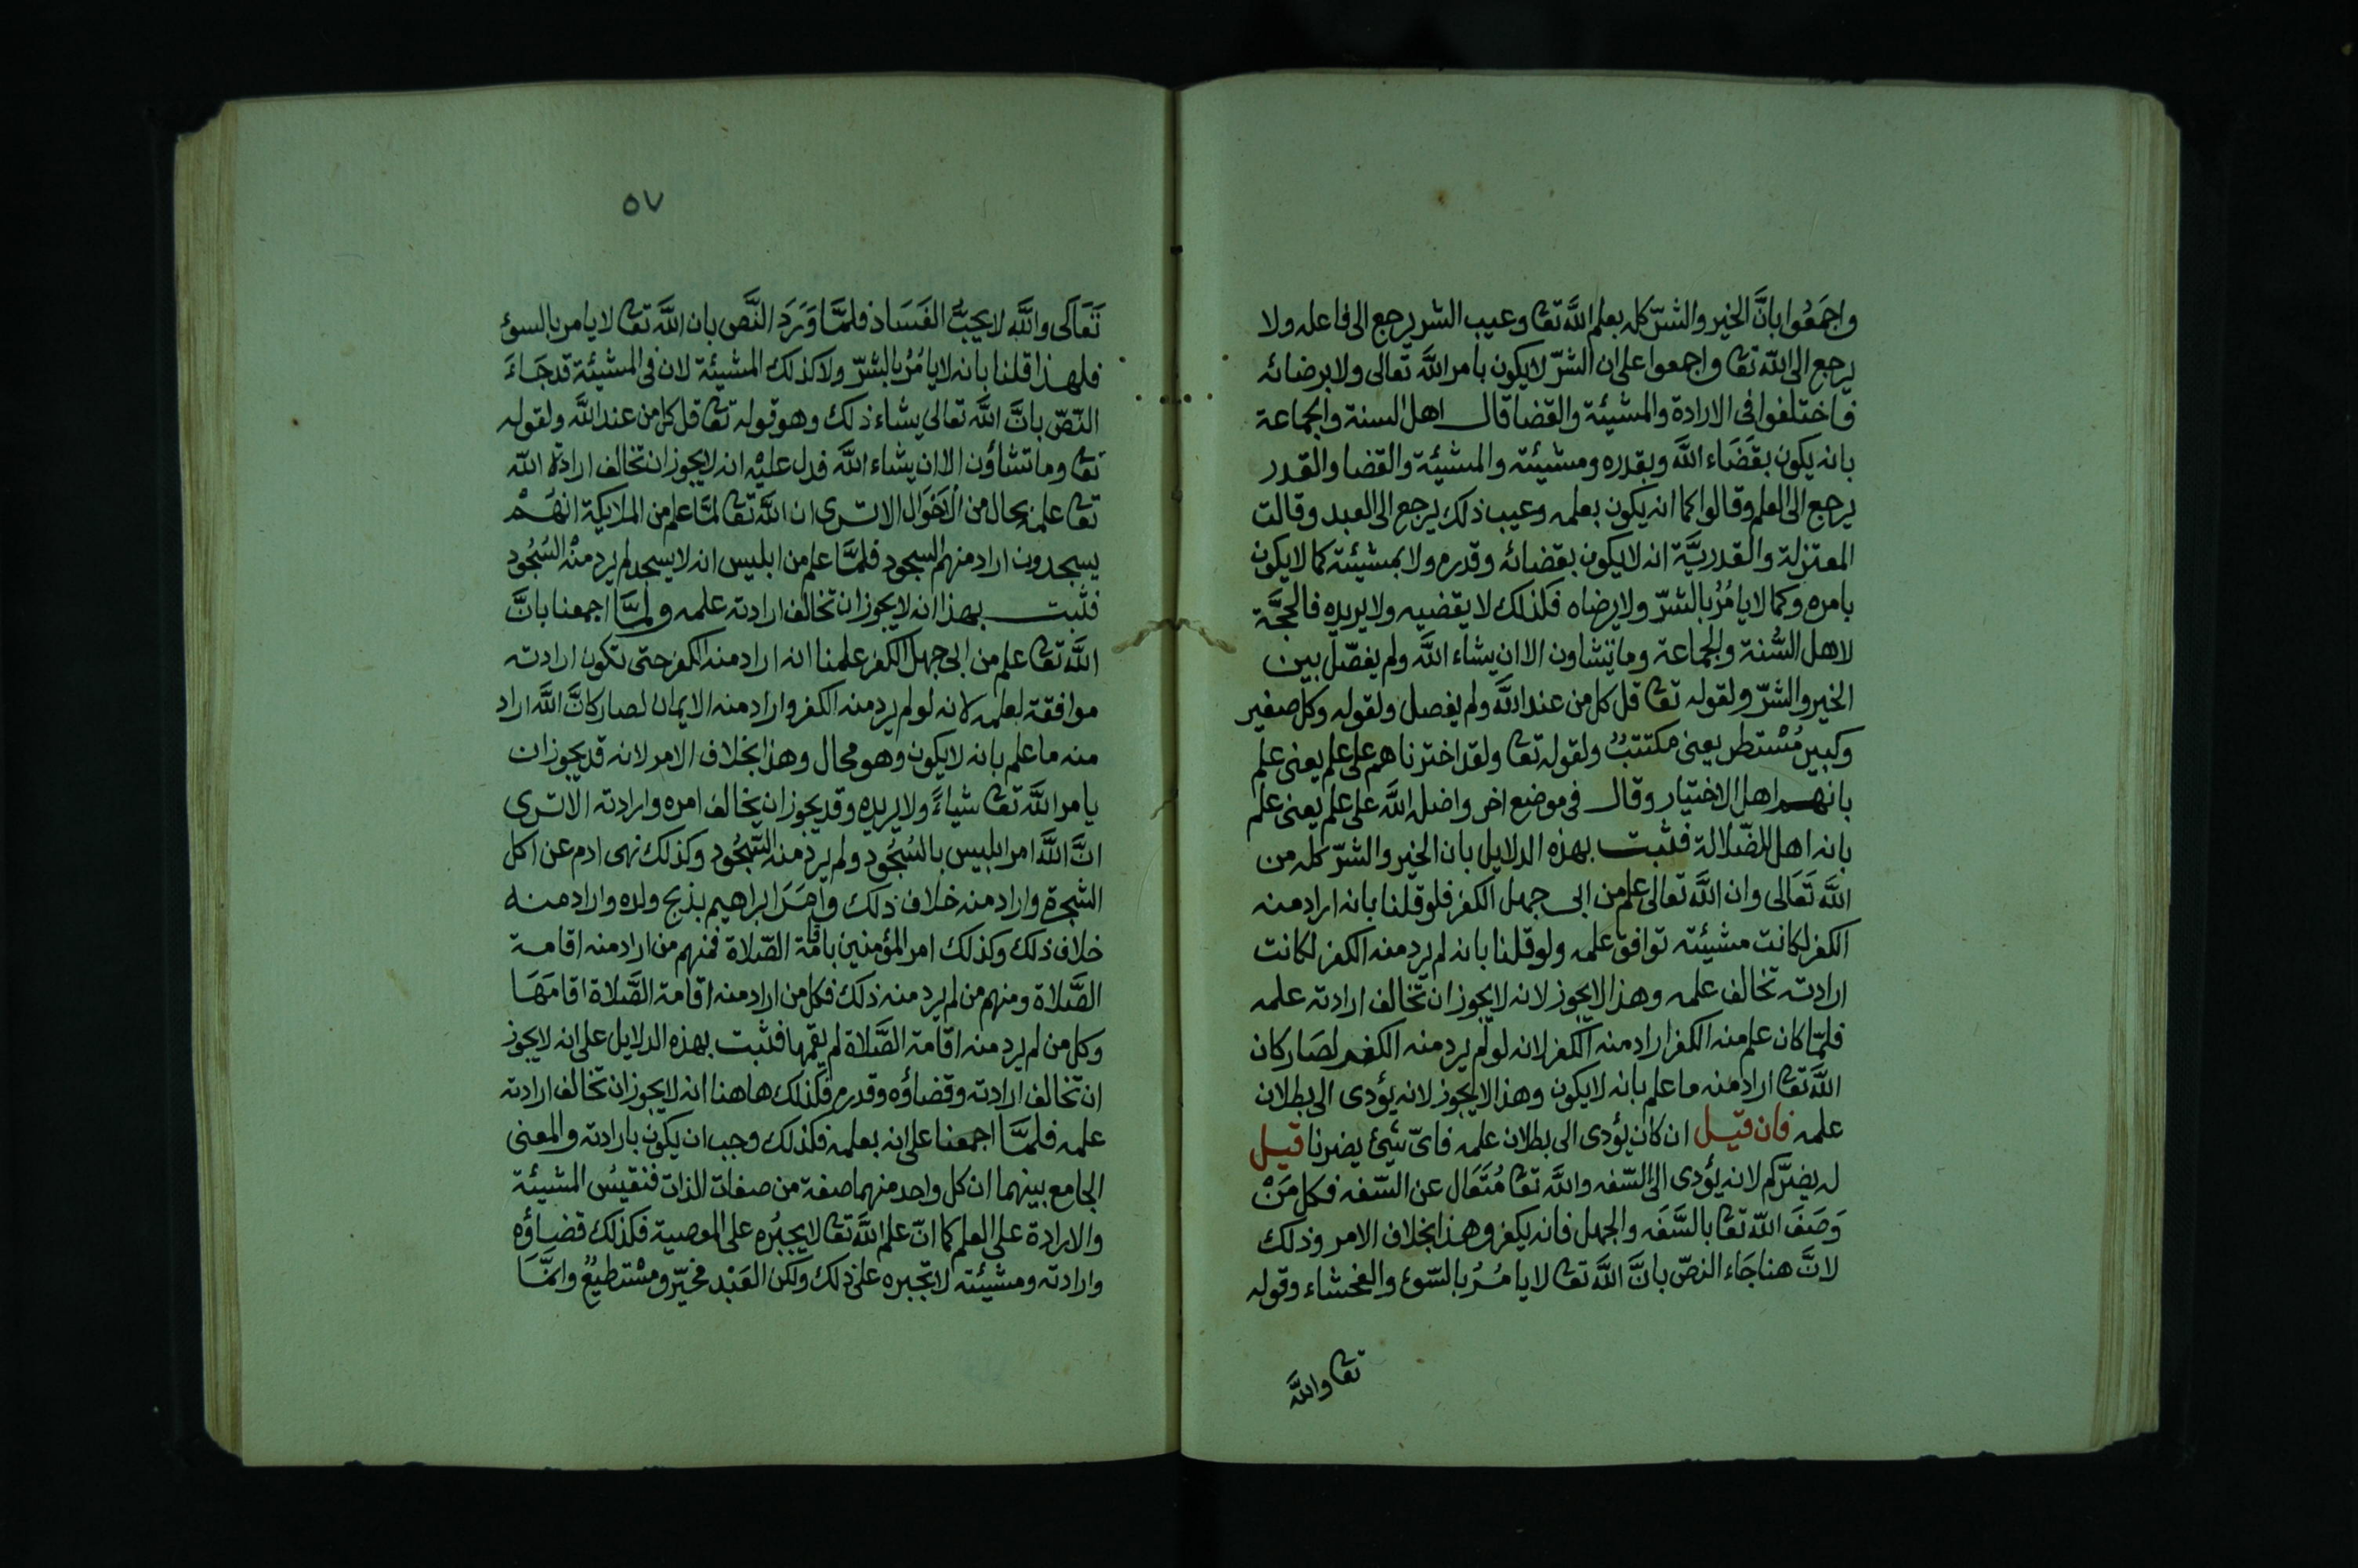 واجمَعُوا بانَّ الخير والشرّ كله بعلم اللّه تعا وعيب الشر يرجع الى فاعله ولا
يرجع الى اللّه تعا واجمعوا على ان الشرّ لا يكون بامر اللّه تعالى ولا برضائه
فاختلفوا فى الارادة والمشيئة والقضا قال اهل السنة والجماعة
بانه يكون بقَضَاء اللّه وبقدره ومشيئته والمشيئة والقضا والقدر
يرجع الى العلم وقالوا كما انه يكون بعلمه وعيب ذلك يرجع الى العبد وقالت
المعتزلة والقدريَّة انه لا يكون بقضائه وقدره ولا بمشيئته كما لا يكون
بامره وكما لا يامُرُ بالشرّ ولا يرضاه فكذلك لا يقضيه ولا يريده فالحجَّة
لاهل السُّنة والجماعة وما تشاون الا ان يشاء اللّه ولم يفصّل بين
الخير والشرّ ولقوله تعا قل كل من عند اللّه ولم يفصل ولقوله وكل صغير
وكبير مُسْتطر يعنى مكتتبٌ ولقوله تعا ولقد اخترناهم على علم يعنى علم
بانهم اهل الاختيار وقال فى موضع اخر واضل اللّه على علم يعنى علم
بانه اهل للضّلالة فثبت بهذه الدلايل بان الخير والشرّ كله من
اللّه تَعَالى وان اللّه تعالى علم من ابى جهل الكفر فلو قلنا بانه اراد منه
الكفر لكانت مشيئته توافق علمه ولو قلنا بانه لم يرد منه الكفر لكانت
ارادته تخالف علمه وهذا لا يجوز لانه لا يجوز ان تخالف ارادته علمه
فلمّا كان علم منه الكفر اراد منه الكفر لانه لو لم يرد منه الكفر لصَار كان
اللّه تعا اراد منه ما علم بانه لا يكون وهذا لا يجوز لانه يؤدى الى بطلان
علمه فان قيل ان كان يؤدى الى بطلان علمه فاىّ شيئ يضرنا قيل
له يضرّكم لانه يؤدى الى السّفه واللّه تعا مُتَعَال عن السّفه فكل مَنْ
وَصَفَ اللّه تعا بالسَّفَه والجهل فانه يكفر وهذا بخلاف الامر وذلك
لانَّ هنا جَاء النصّ بانَّ اللّه تعا لا يامُرُ بالسّوء والفحشاء وقوله
تعا واللّه
٥٧
تَعَالَى واللّه لا يحِبُّ الفَسَاد فلمَّا وَرَدَ النَّص بان اللّه تعا لا يامر بالسوء
فلهذا قلنا بانه لا يامُرُ بالشرّ ولا كذلك المشيئة لان فى المشيئة قد جَاءَ
النّصّ بانَّ اللّه تعالى يشاء ذلك وهو قوله تعا قل كل من عند اللّه ولقوله
تعا وما تشاؤن الا ان يشاء اللّه فدل عليْه انه لا يجوز ان تخالف ارادة اللّه
تعا علمه بحال من الاَحْوَال الا ترى ان اللّه تعا لمَّا علم من الملايكة انهُمْ
يسجدون اراد منهم السجود فلمَّا علم من ابليس انه لا يسجد لم يرد منْه السُجُود
فثبت بهذا انه لا يجوز ان تخالف ارادته علمه ولمَّا اجمعنا بانَّ
اللّه تعا علم من ابى جهل الكفر علمنا انه اراد منه الكفر حتى تكون ارادته
موافقة لعلمه لانه لو لم يرد منه الكفر واراد منه الايمان لصار كانَّ اللّه اراد
منه ما علم بانه لا يكون وهو محال وهذا بخلاف الامر لانه قد يجوز ان
يامر اللّه تعا شياءً ولا يريده وقد يجوز ان يخالف امره وارادته الا ترى
انَّ اللّه امر ابليس بالسُجُود ولم يرد منه السُّجُود وكذلك نهى ادم عن اكل
الشجرة واراد منه خلاف ذلك واَمَرَ ابراهيم بذبح ولده واراد منه
خلاف ذلك وكذلك امر المؤمنين باقامة الصّلاة فمنهم من اراد منه اقامة
الصَّلاة ومنهم من لم يرد منه ذلك فكل من اراد منه اقامة الصَّلاة اقامَهَا
وكل من لم يرد منه اقامة الصَّلاة لم يقمها فثبت بهذه الدلايل على انه لا يجوز
ان تخالف ارادته وقضاؤه وقدره فكذلك هاهنا انه لا يجوز ان تخالف ارادته
علمه فلمَّا اجمعنا على انه بعلمه فكذلك وجب ان يكون بارادته والمعنى
الجامع بينهما ان كل واحد منهما صفة من صفات الذات فنقيسُ المشيئة
والارادة على العلم كما انّ علم اللّه تعا لا يجبُره على المعصية فكذلك قضاؤه
وارادته ومشيئته لا تجبره على ذلك ولكن العَبْد مخيّر ومسْتطيعٌ وانمَّا